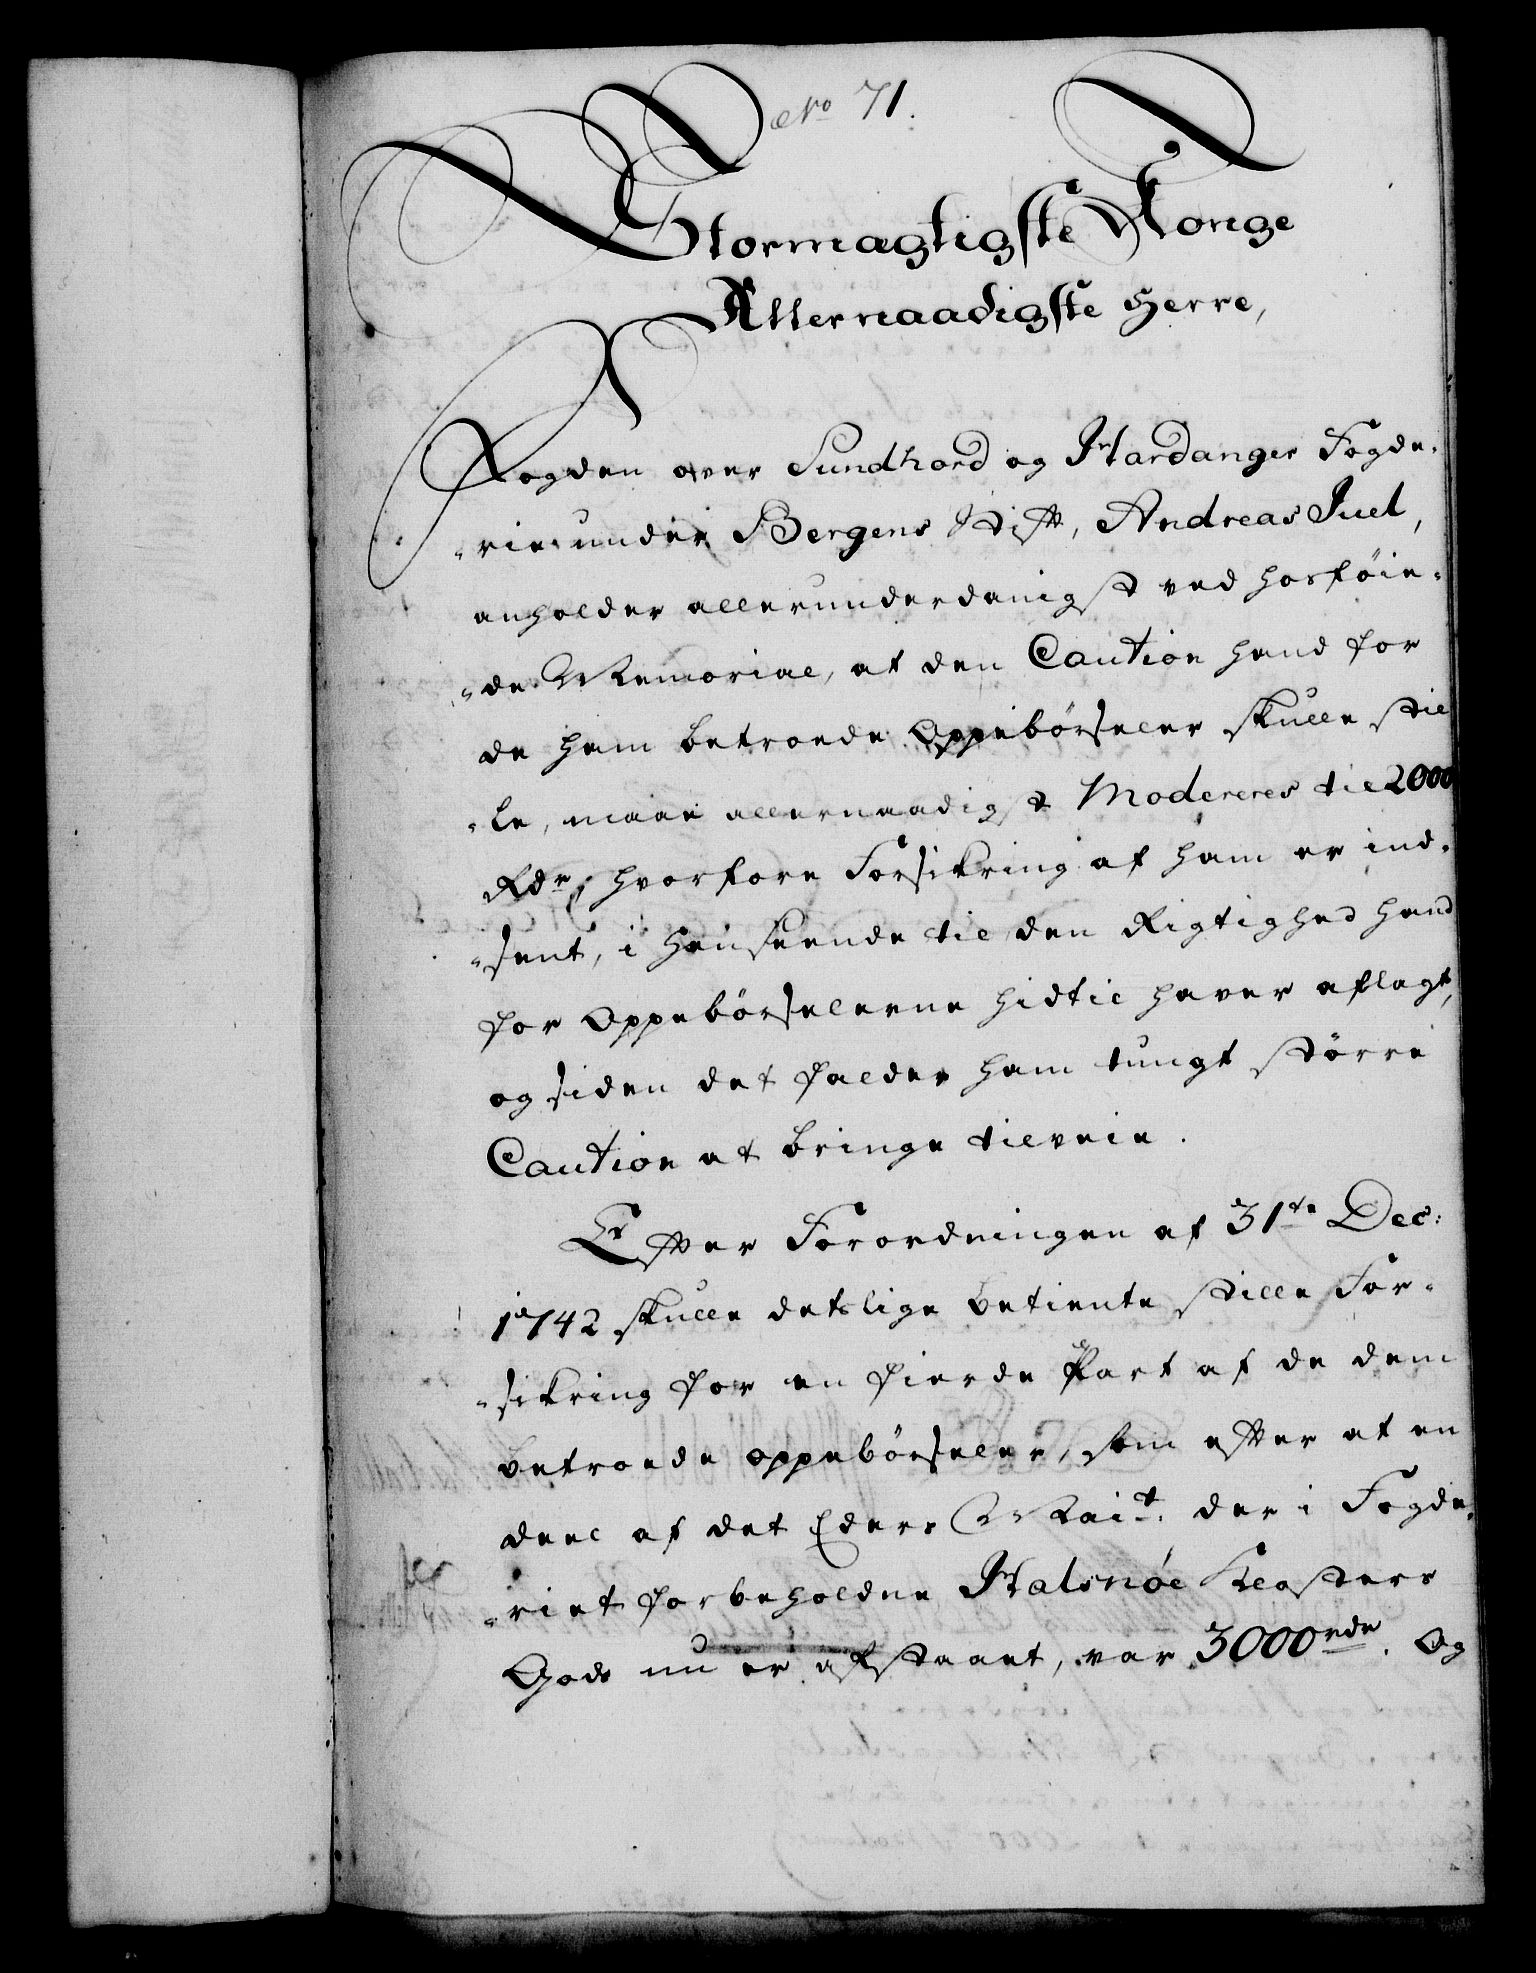 No 71.
Stormægtigste Konge
Allernaadigste Herre,
Fogden over Sundhord og Hardanger Fogde-
-rie under Bergens Stift, Andreas Juel,
anholder allerunderdanigst ved hosføie-
-de Memorial, at den Caution hand for
de ham betroede Oppebørseler skulle stil
-le, maae allernaadigst Modereres til 2000
Rdr, hvorfore Forsikring af ham er ind-
-sent, i Henseende til den Rigtighed hand
for Oppebørselerne hidtil haver aflagt,
og siden det falder ham tungt større
Caution at bringe tilveie.
Efter Forordningen af 31te Dec:
1742 skulle deslige betiente stille For-
-sikring for en fierde Part af de dem
betroede oppebørseler, som efter at en
deel af det Eders Mait. der i Fogde-
-riet forbeholdne Halsnøe Klosters
Gods nu er afstaaet, var 3000 rdr. Og